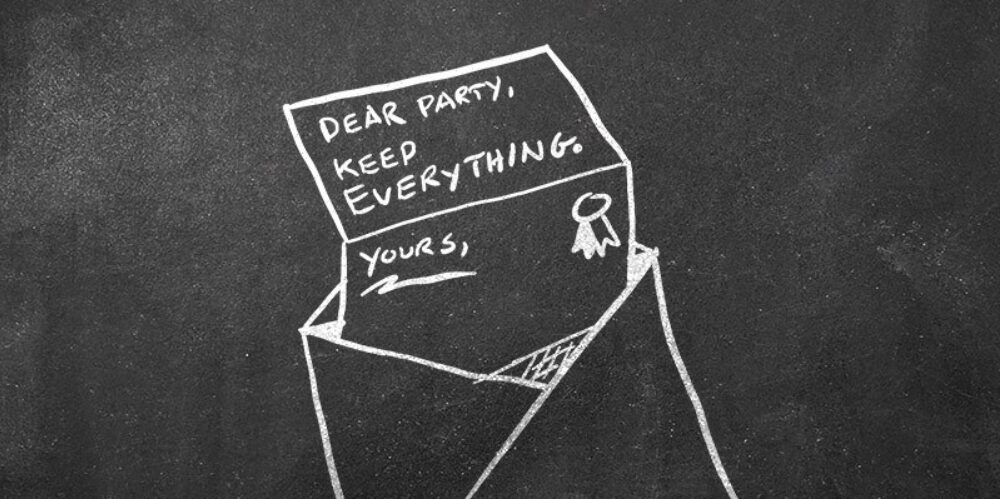 DEAR PARTY,
KEEP
EVERYTHING.
YOURS,